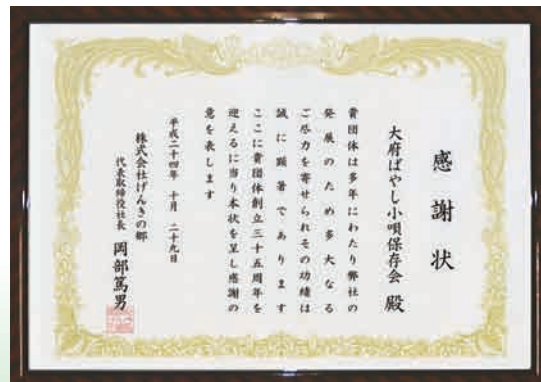 感謝状
大府ばやし小唄保存会 殿
貴団体は多年にわたり弊社の
発展のため多大なる
ご尽力を寄せられその功績は
誠に顕著であります
ここに貴団体創立三十五周年を
迎えるに当り本状を呈し感謝の
意を表します
平成二十四年 十月 二十九日
株式会社げんきの郷
代表取締役社長 岡部篤男